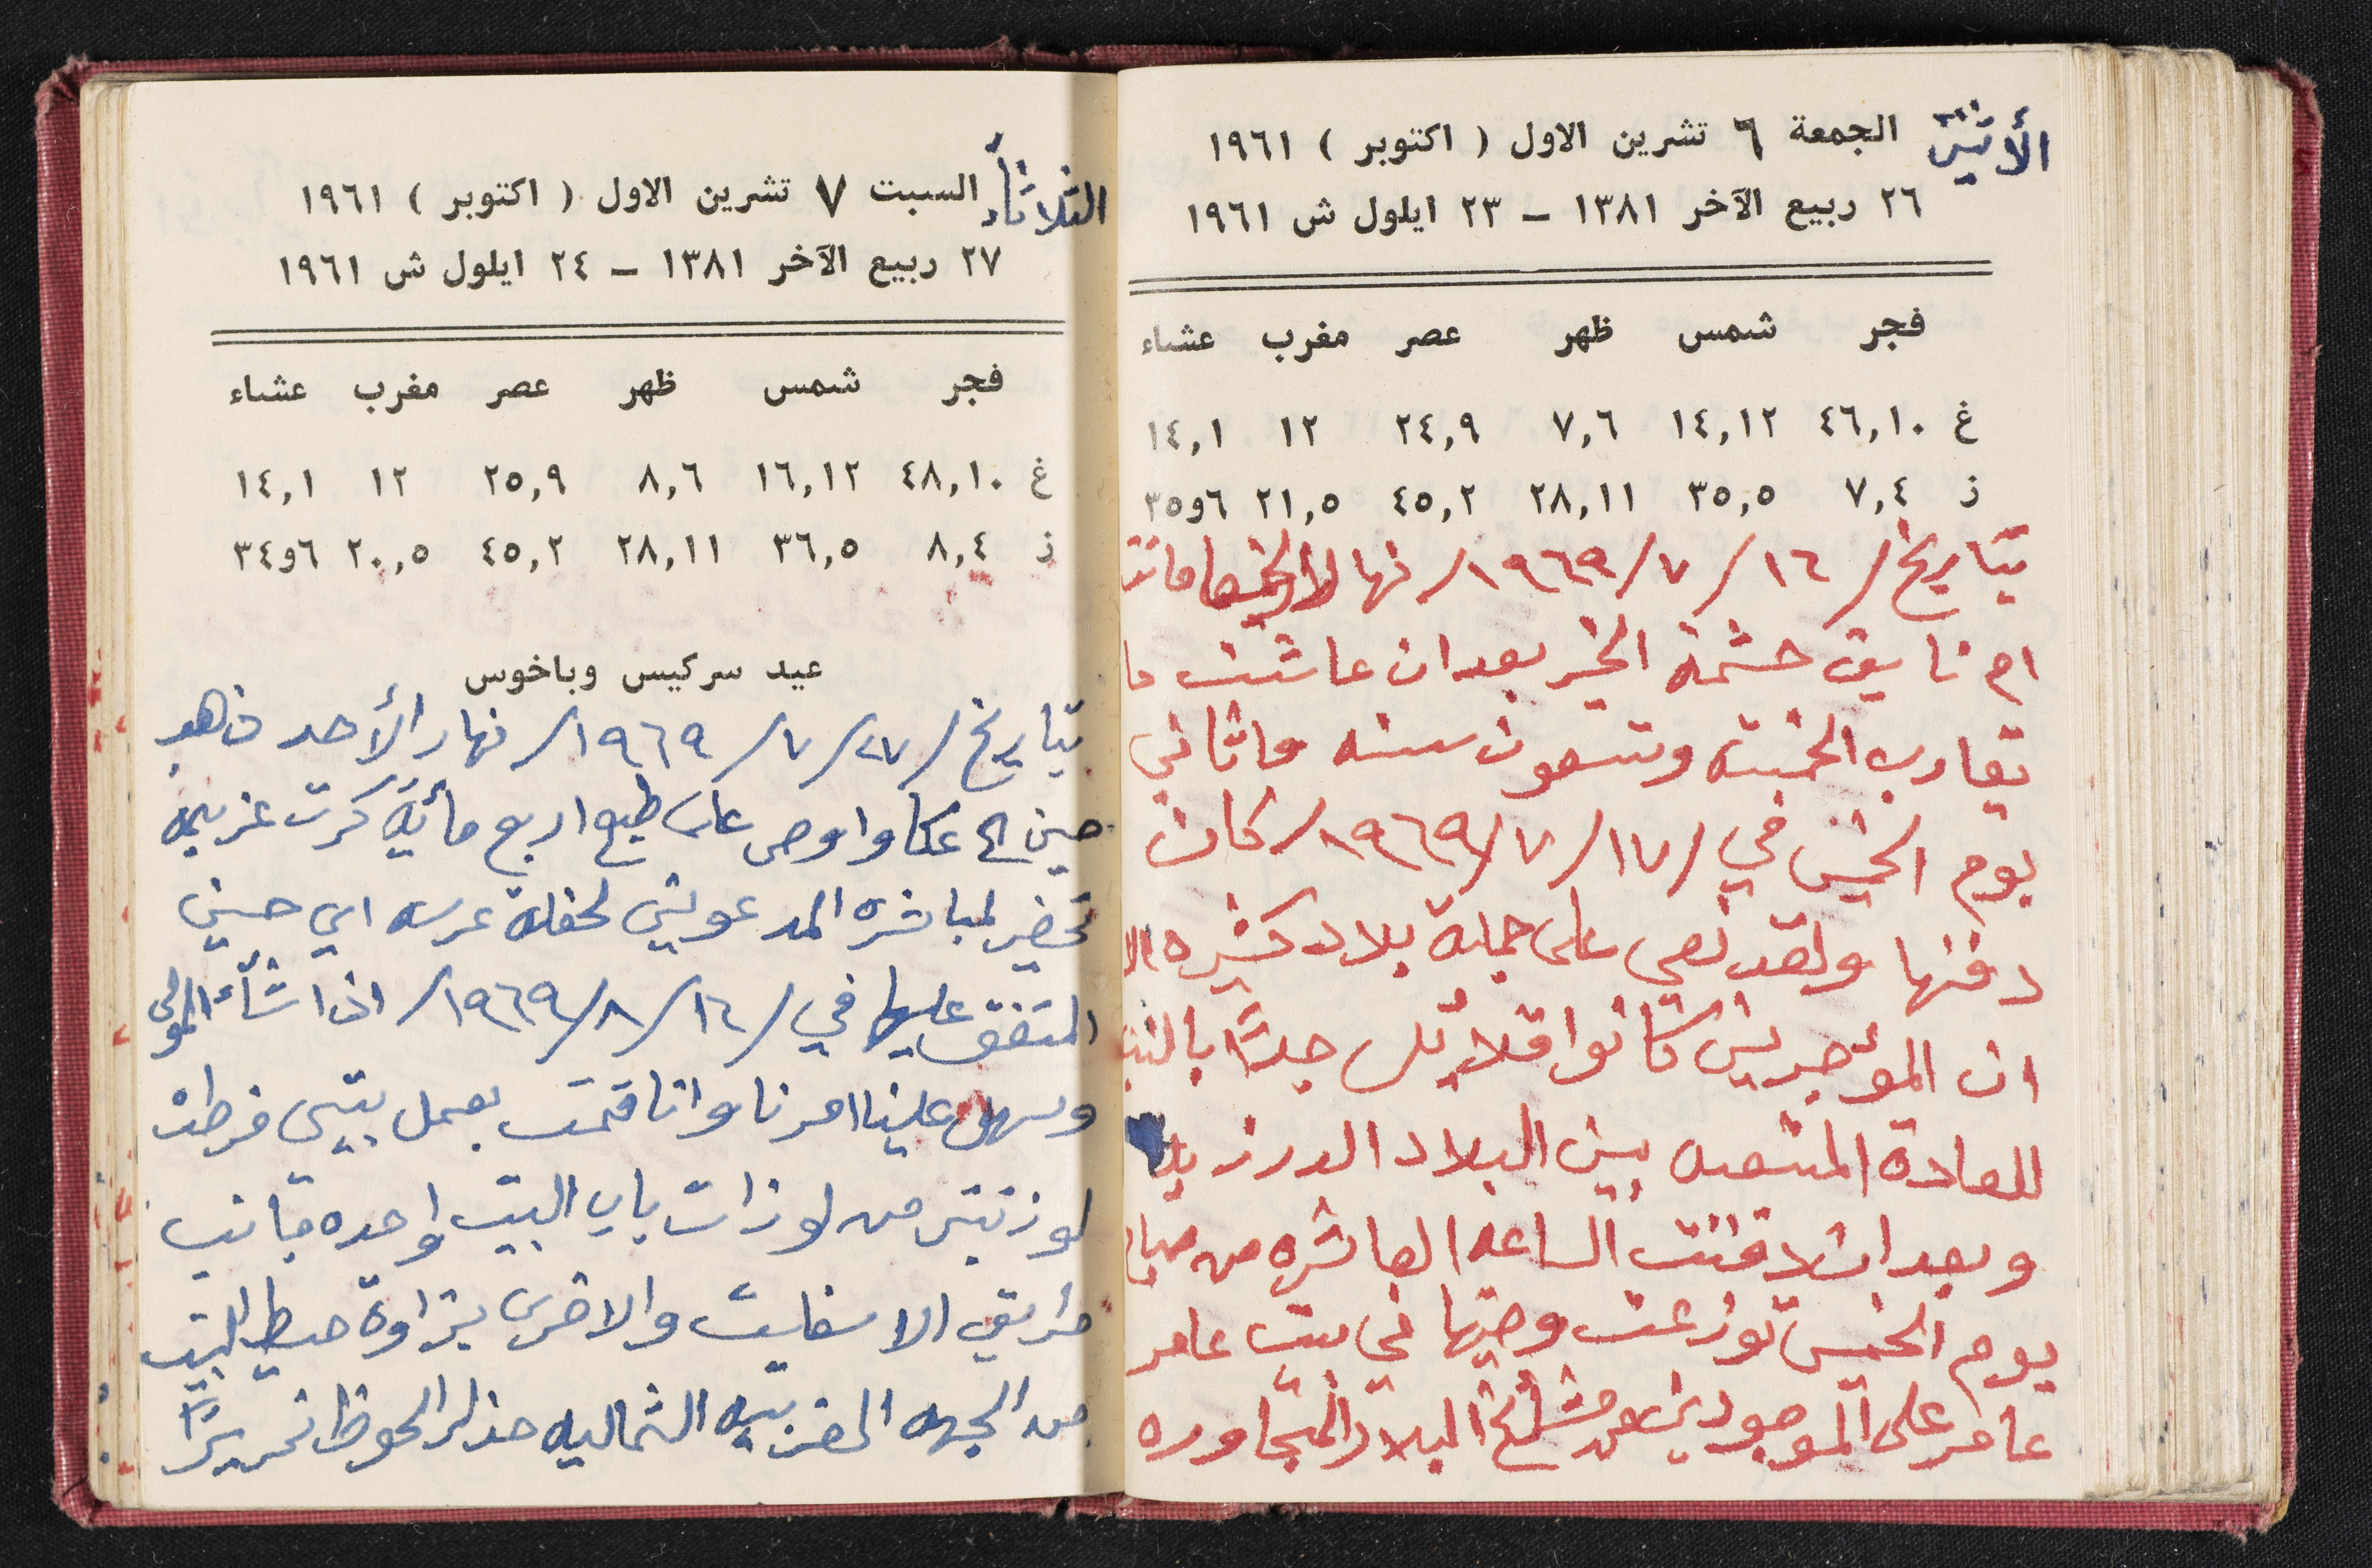 الأثنين
الجمعة ٦ تشرين الاول ( اكتوبر ) ١٩٦١
٢٦ ربيع الآخر ١٣٨١ – ٢٣ ايلول ش ١٩٦١
فجر شمس ظهر عصر مغرب عشاء
غ ٤٦,١٠ ١٤,١٢ ٧,٦ ٢٤,٩ ١٢ ١٤,١
ز ٧,٤ ٣٥,٥ ٢٨,١١ ٤٥,٢ ٢١,٥ ٦و٣٥
بتاريخ /١٦ /٧ /١٩٦٩/ نهار ماتت
ام نايف حشمة الخير بعد ان عاشت ما
يقارب الخمسه وتسعون سنه وثاني
يوم الخميس في /١٧ /٧ /١٩٦٩/ كان
دفنها ولقد نعي على جملة بلاد كثيره الا
ان المؤجرين كانوا قلائل جدًا
للعادة المتبعه بين البلاد الدرزيه
وبعد ان الساعه العاشره من صباح
يوم الخميس توزعت وصيتها في بيت عامر
عامر على الموجودين من مشائخ البلاد المتجاوره
الثلاثاء
السبت ٧ تشرين الاول ( اكتوبر ) ١٩٦١
٢٧ ربيع الآخر ١٣٨١ – ٢٤ ايلول ش ١٩٦١
فجر شمس ظهر عصر مغرب عشاء
غ ٤٨,١٠ ١٦,١٢ ٨,٦ ٢٥,٩ ١٢ ١٤,١
ز ٨,٤ ٣٦,٥ ٢٨,١١ ٤٥,٢ ٢٠,٥ ٦و٣٤
عيد سركيس وباخوس
بتاريخ /٢٧ /٧ /١٩٦٩/ نهار الأحد ذهب
حسين الى عكا واوصى على طبع اربع مائة كرت عزيمه
تحضير لمباشره المدعوين لحفلة عرسه اي حسين
المتفق عليها في /١٦ /٨ /١٩٦٩/ اذا شاء المولى
وسهل علينا امرنا وانا قمت بعمل بيتي فرطت
لوزتين من لوزات باب البيت واحده بجانب
طريق الاسفلت والاخرى بزاوة حيط البيت
من الجهه الغربيه الشماليه